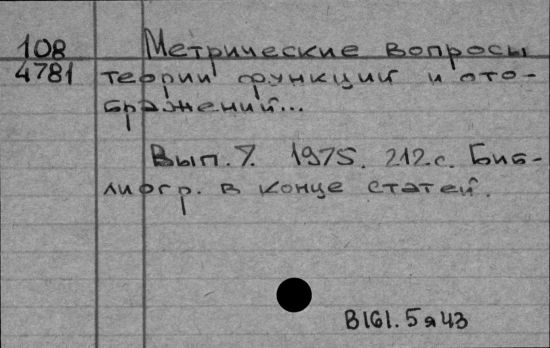 108 Метрические вопросы
4781 теории функций и ото-
бражений...
Вып. 7. 1975. 212 с. Биб-
лиогр. в конце статей.
В161.5я43